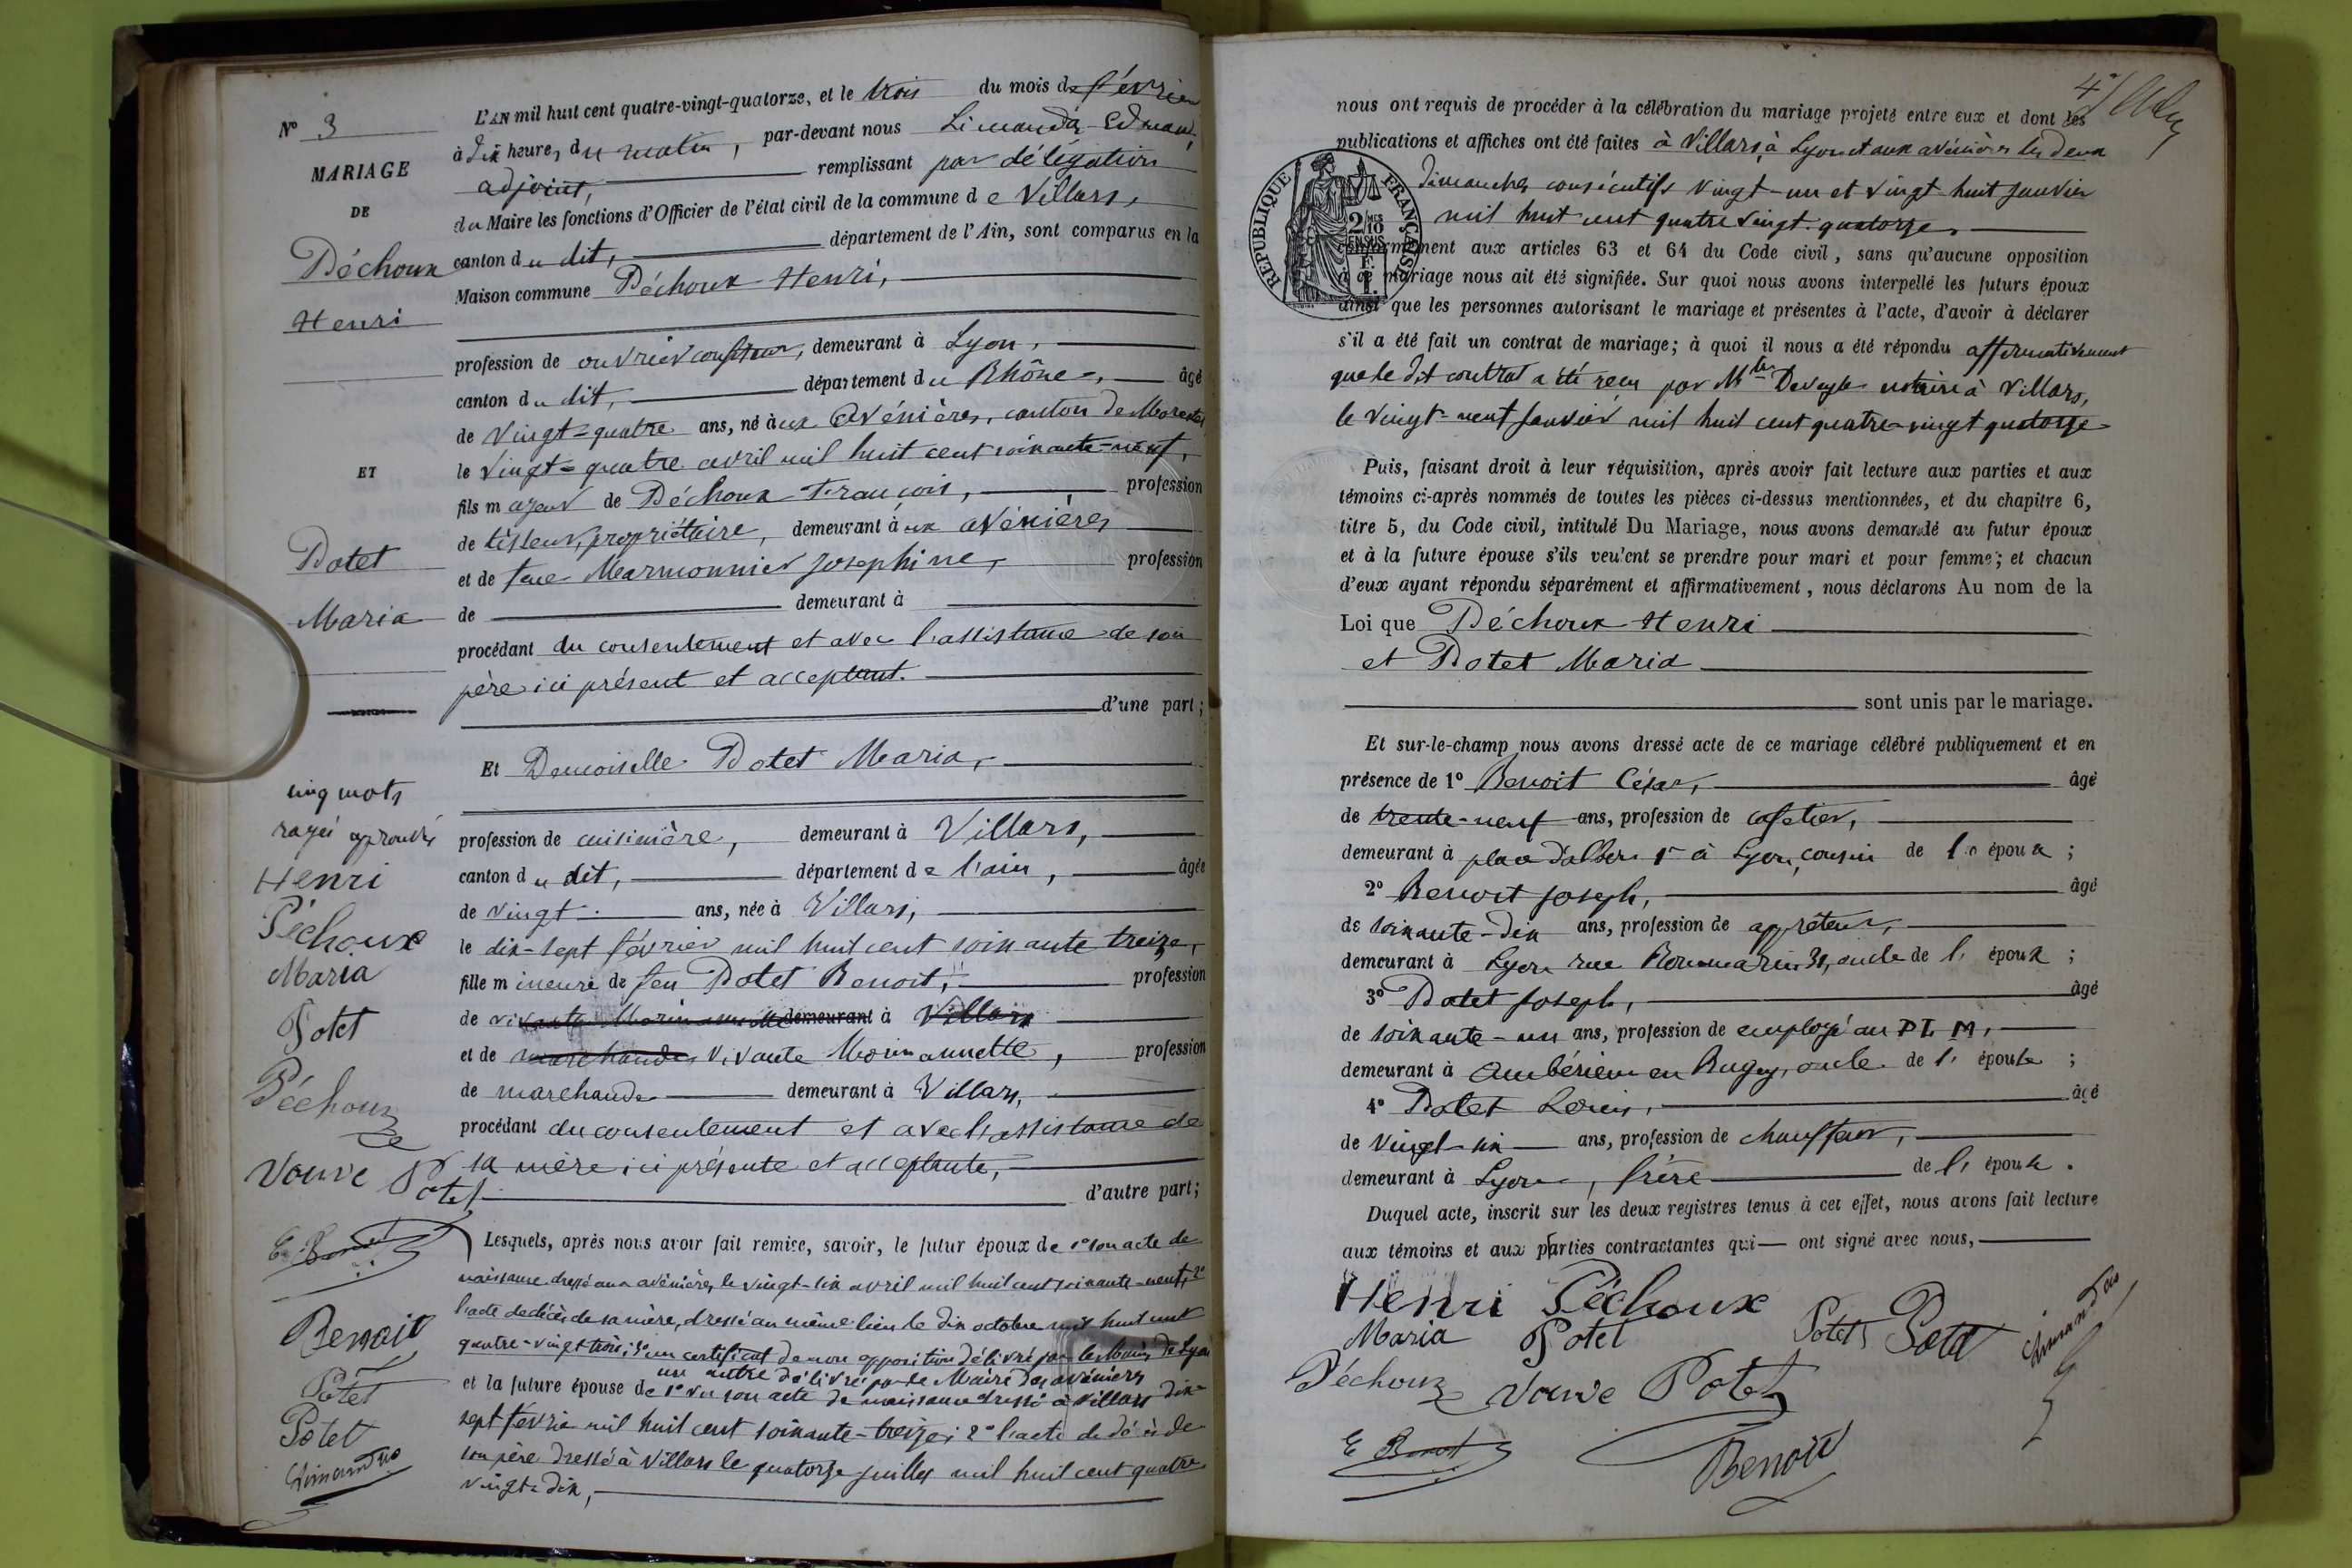 N° 3
MARIAGE
DE
Péchoux
Henri
ET
Potet
Maria
cinq mots
rayés aprouvés
Henri
Péchoux
Maria
Potet
Péchoux
Vouve Potet
E Benoit
Benoit
Potet
Potet
Limandas
L'AN mil huit cent quatre-vingt-quatorze, et le trois du mois de février
à dix heures du matin, par-devant nous Limandas Edmond,
adjoint, remplissant par délégation
du Maire les fonctions d'Officier de l'état civil de la commune de Villars,
canton du dit, département de l'Ain, sont comparus en la
Maison commune Péchoux Henri,
profession de ouvrier, demeurant à Lyon,
canton du dit, département du Rhône, âgé
de vingt-quatre ans, né aux Avénières, canton de Morestel
le vingt-quatre avril mil huit cent soixante-neuf,
fils majeur de Péchoux François, profession
de tisseur, propriétaire, demeurant aux avénières
et de feue Marmonnier Josephine, profession
de demeurant à
procédant du consentement et avec l'assistance de son
père ici présent et acceptant.
d'une part;
Et Demoiselle Potet Maria,
profession de cuisinière, demeurant à Villars,
canton du dit, département de l'ain, âgée
de vingt ans, née à Villars,
le dix-sept février mil huit cent soixante treize,
fille mineure de feu Potet Benoit, profession
de vivante Morin annette demeurant à Villars
et de marchande vivante Morin annette, profession
de marchande demeurant à Villars,
procédant du consentement et avec l'assistance de
sa mère ici présente et acceptante,
d'autre part;
Lesquels, après nous avoir fait remise, savoir, le futur époux de 1° son acte de
naissance dressé aux avénières, le vingt-six avril mil huit cent soixante-neuf, 2°
l'acte de décès de sa mère, dressé au même lieu le dix octobre mil huit cent
quatre-vingt-trois; 3° un certificat de non opposition délivré par le Maire de Lyon
un autre délivré par le Maire des avénières
et la future épouse de 1° vu son acte de naissance dressé à Villars dix-
sept février mil huit cent soixante-treize; 2° l'acte de décès de
son père dressé à Villars le quatorze juillet mil huit cent quatre
vingt-dix,
4
nous ont requis de procéder à la célébration du mariage projeté entre eux et dont les
publications et affiches ont été faites à Villars, à Lyon et aux avénières les deux
dimanches consécutifs vingt-un et vingt-huit janvier
mil huit cent quatre vingt-quatorze,
RÉPUBLIQUE FRANÇAISE
2/10
conformément aux articles 63 et 64 du Code civil, sans qu'aucune opposition
à ce mariage nous ait été signifiée. Sur quoi nous avons interpellé les futurs époux
ainsi que les personnes autorisant le mariage et présentes à l'acte, d'avoir à déclarer
s'il a été fait un contrat de mariage; à quoi il nous a été répondu affirmativement
que le dit contrat a été reçu par Mtre Deveyle notaire à Villars,
le vingt-neuf janvier mil huit cent quatre-vingt quatorze
Puis, faisant droit à leur réquisition, après avoir fait lecture aux parties et aux
témoins ci-après nommés de toutes les pièces ci-dessus mentionnées, et du chapitre 6,
titre 5, du Code civil, intitulé Du Mariage, nous avons demandé au futur époux
et à la future épouse s'ils veulent se prendre pour mari et pour femme; et chacun
d'eux ayant répondu séparément et affirmativement, nous déclarons Au nom de la
Loi que Péchoux Henri
et Potet Maria
sont unis par le mariage.
Et sur-le-champ nous avons dressé acte de ce mariage célébré publiquement et en
présence de 1° Benoit César, âgé
de trente-neuf ans, profession de cafetier,
demeurant à place d'albon 1 à Lyon, cousin de l' époux;
2° Benoit Joseph, âgé
de soixante-dix ans, profession de apprêteur,
demeurant à Lyon rue Romarin 31, oncle de l' époux;
3° Potet Joseph, âgé
de soixante-un ans, profession de employé au PLM,
demeurant à Ambérieu en Bugey, oncle de l' épouse;
4° Potet Louis, âgé
de vingt-six ans, profession de chauffeur,
demeurant à Lyon, frère de l' épouse.
Duquel acte, inscrit sur les deux registres tenus à cet effet, nous avons fait lecture
aux témoins et aux parties contractantes qui ont signé avec nous,
Henri Péchoux
Maria Potet Potet Potet Limandas
Péchoux Vouve Potet
E Benoit Benoit